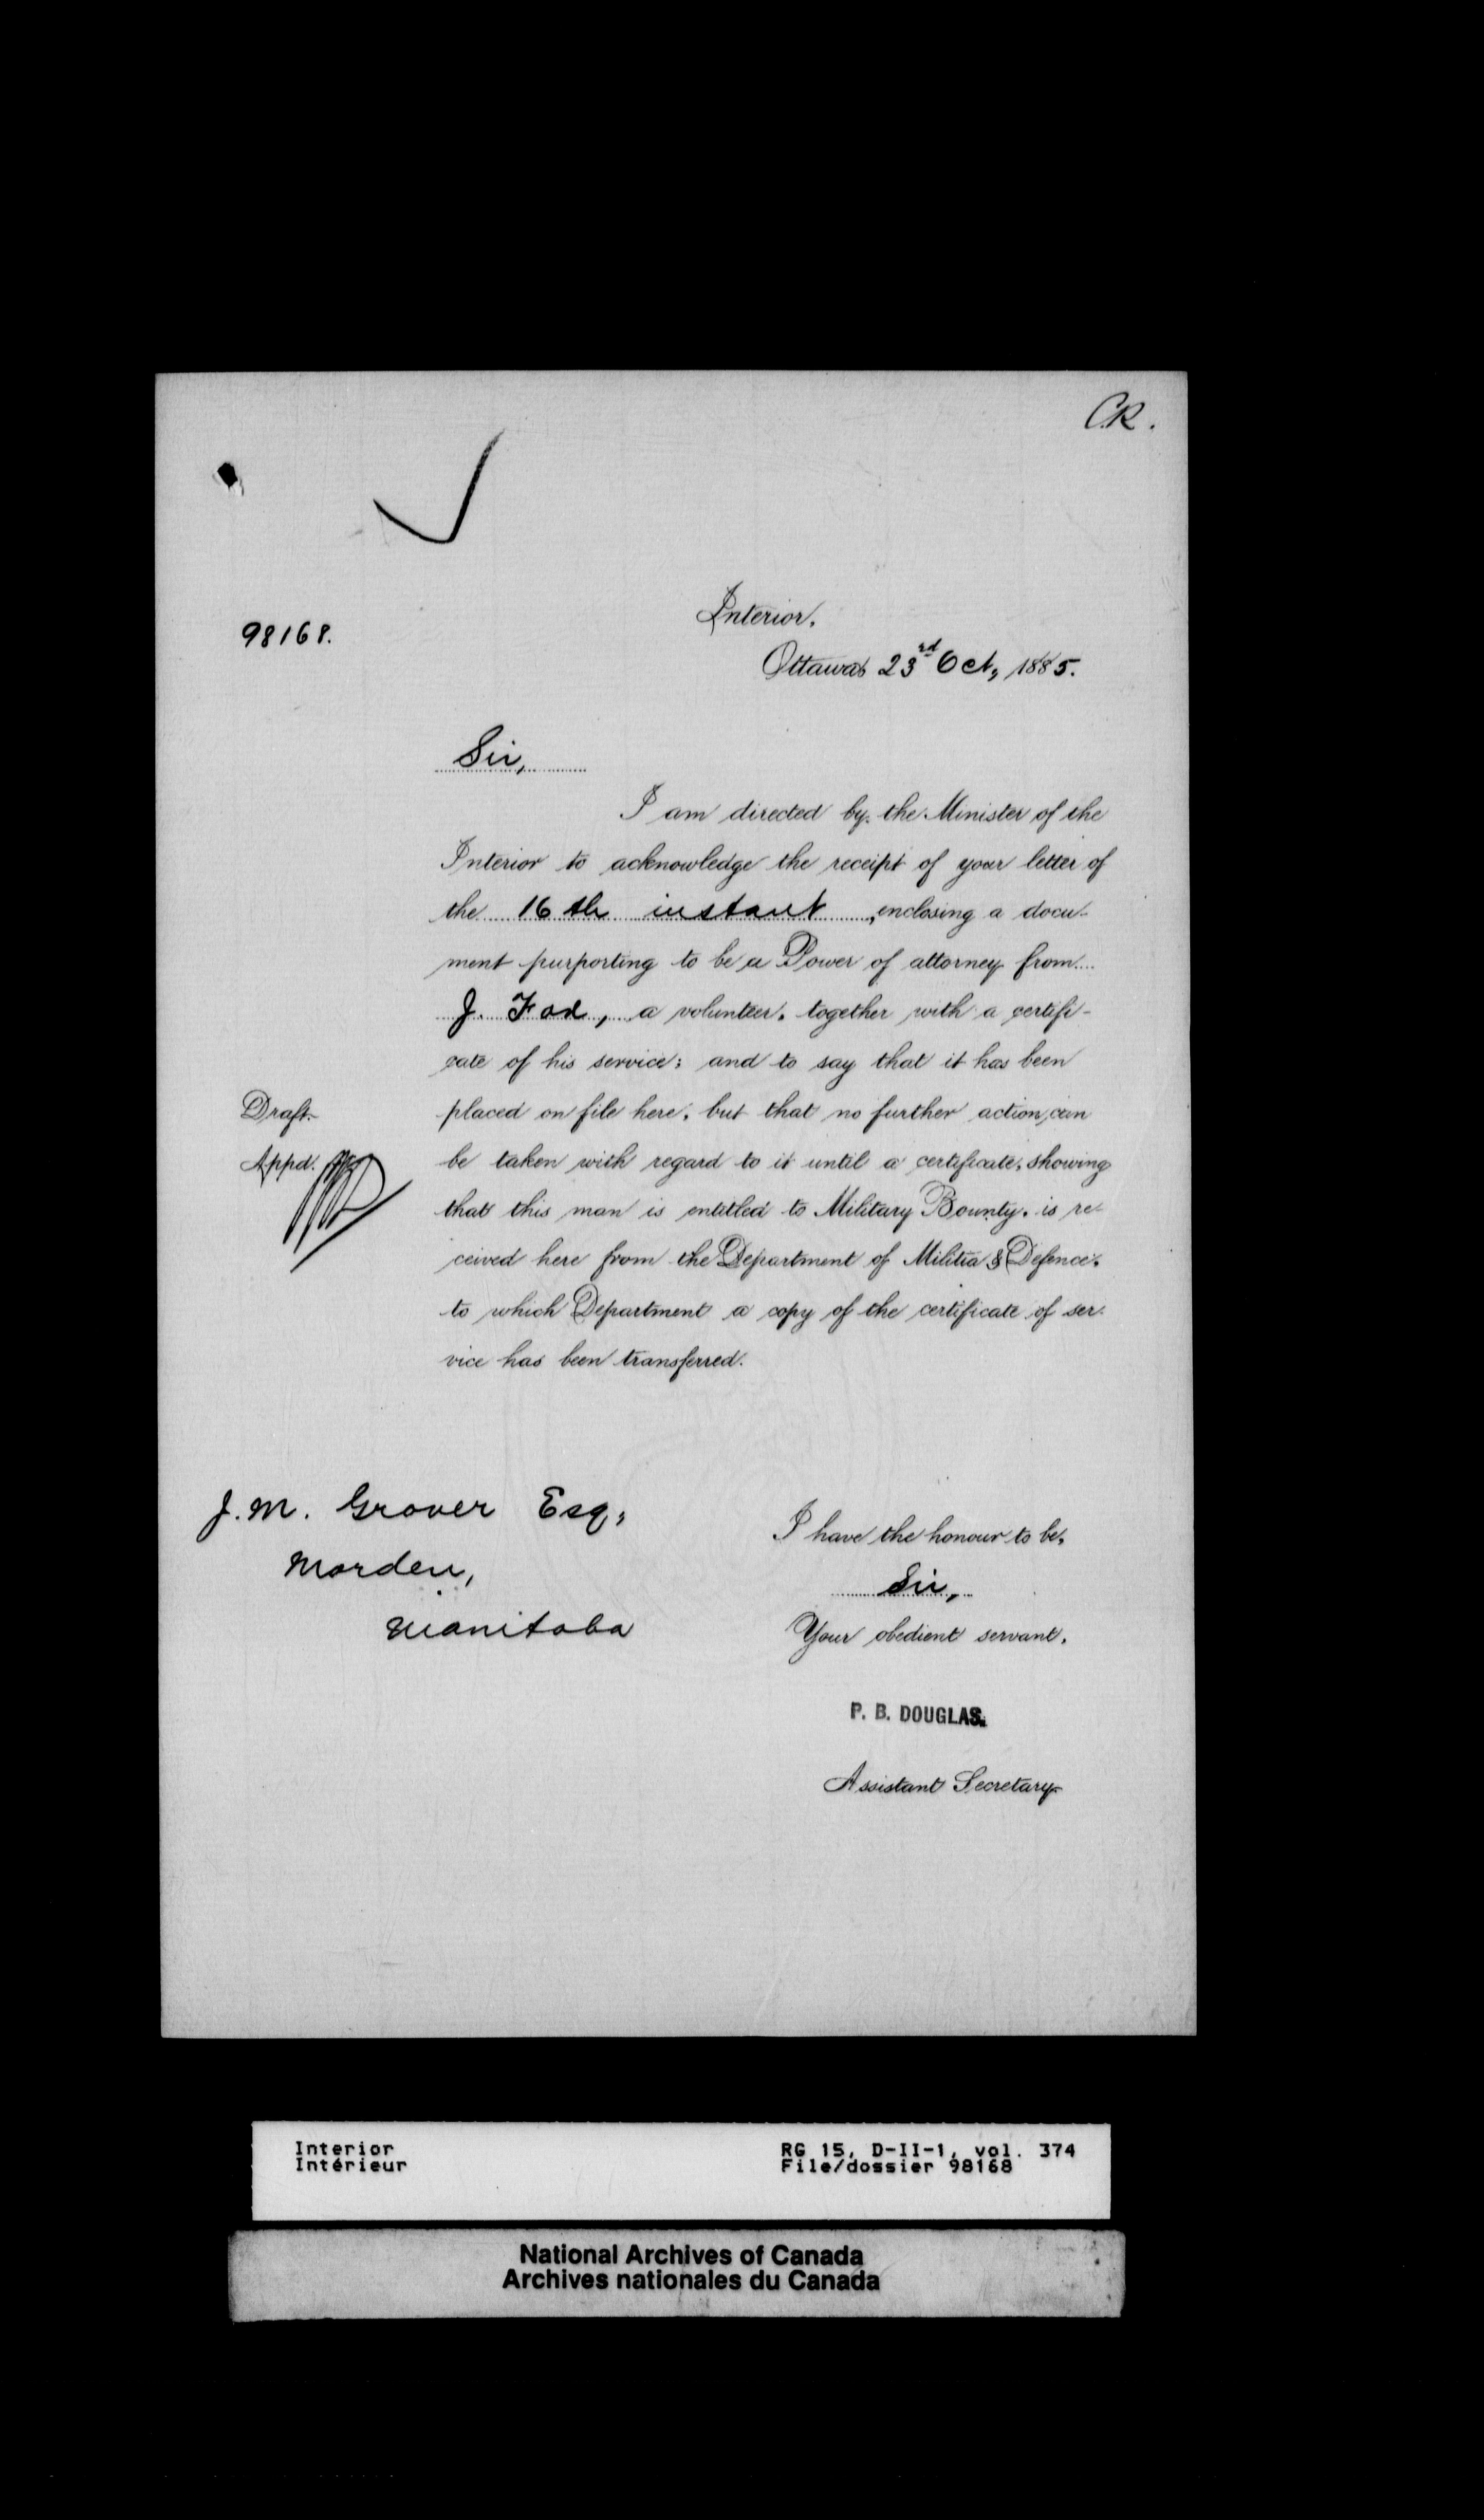 C.R.
98168.
Interior.
Ottawa 23rd Oct, 1885.
Sir,
I am directed by the Minister of the
Interior to acknowledge the receipt of your letter of
the 16th instant, enclosing a docu-
ment purporting to be a Power of attorney from
J. Fox, a volunteer, together with a certifi-
cate of his service; and to say that it has been
placed on file here, but that no further action can
be taken with regard to it until a certificate, showing
that this man is entitled to Military Bounty, is re-
ceived here from the Department of Militia & Defence,
to which Department a copy of the certificate of ser-
vice has been transferred.
Draft.
Appd.
J. M. Grover Esq,
Morden,
Manitoba
I have the honour to be,
Sir,
Your obedient servant,
P. B. DOUGLAS.
Assistant Secretary
Interior
Intérieur
RG 15, D-II-1, vol. 374
File/dossier 98168
National Archives of Canada
Archives nationales du Canada